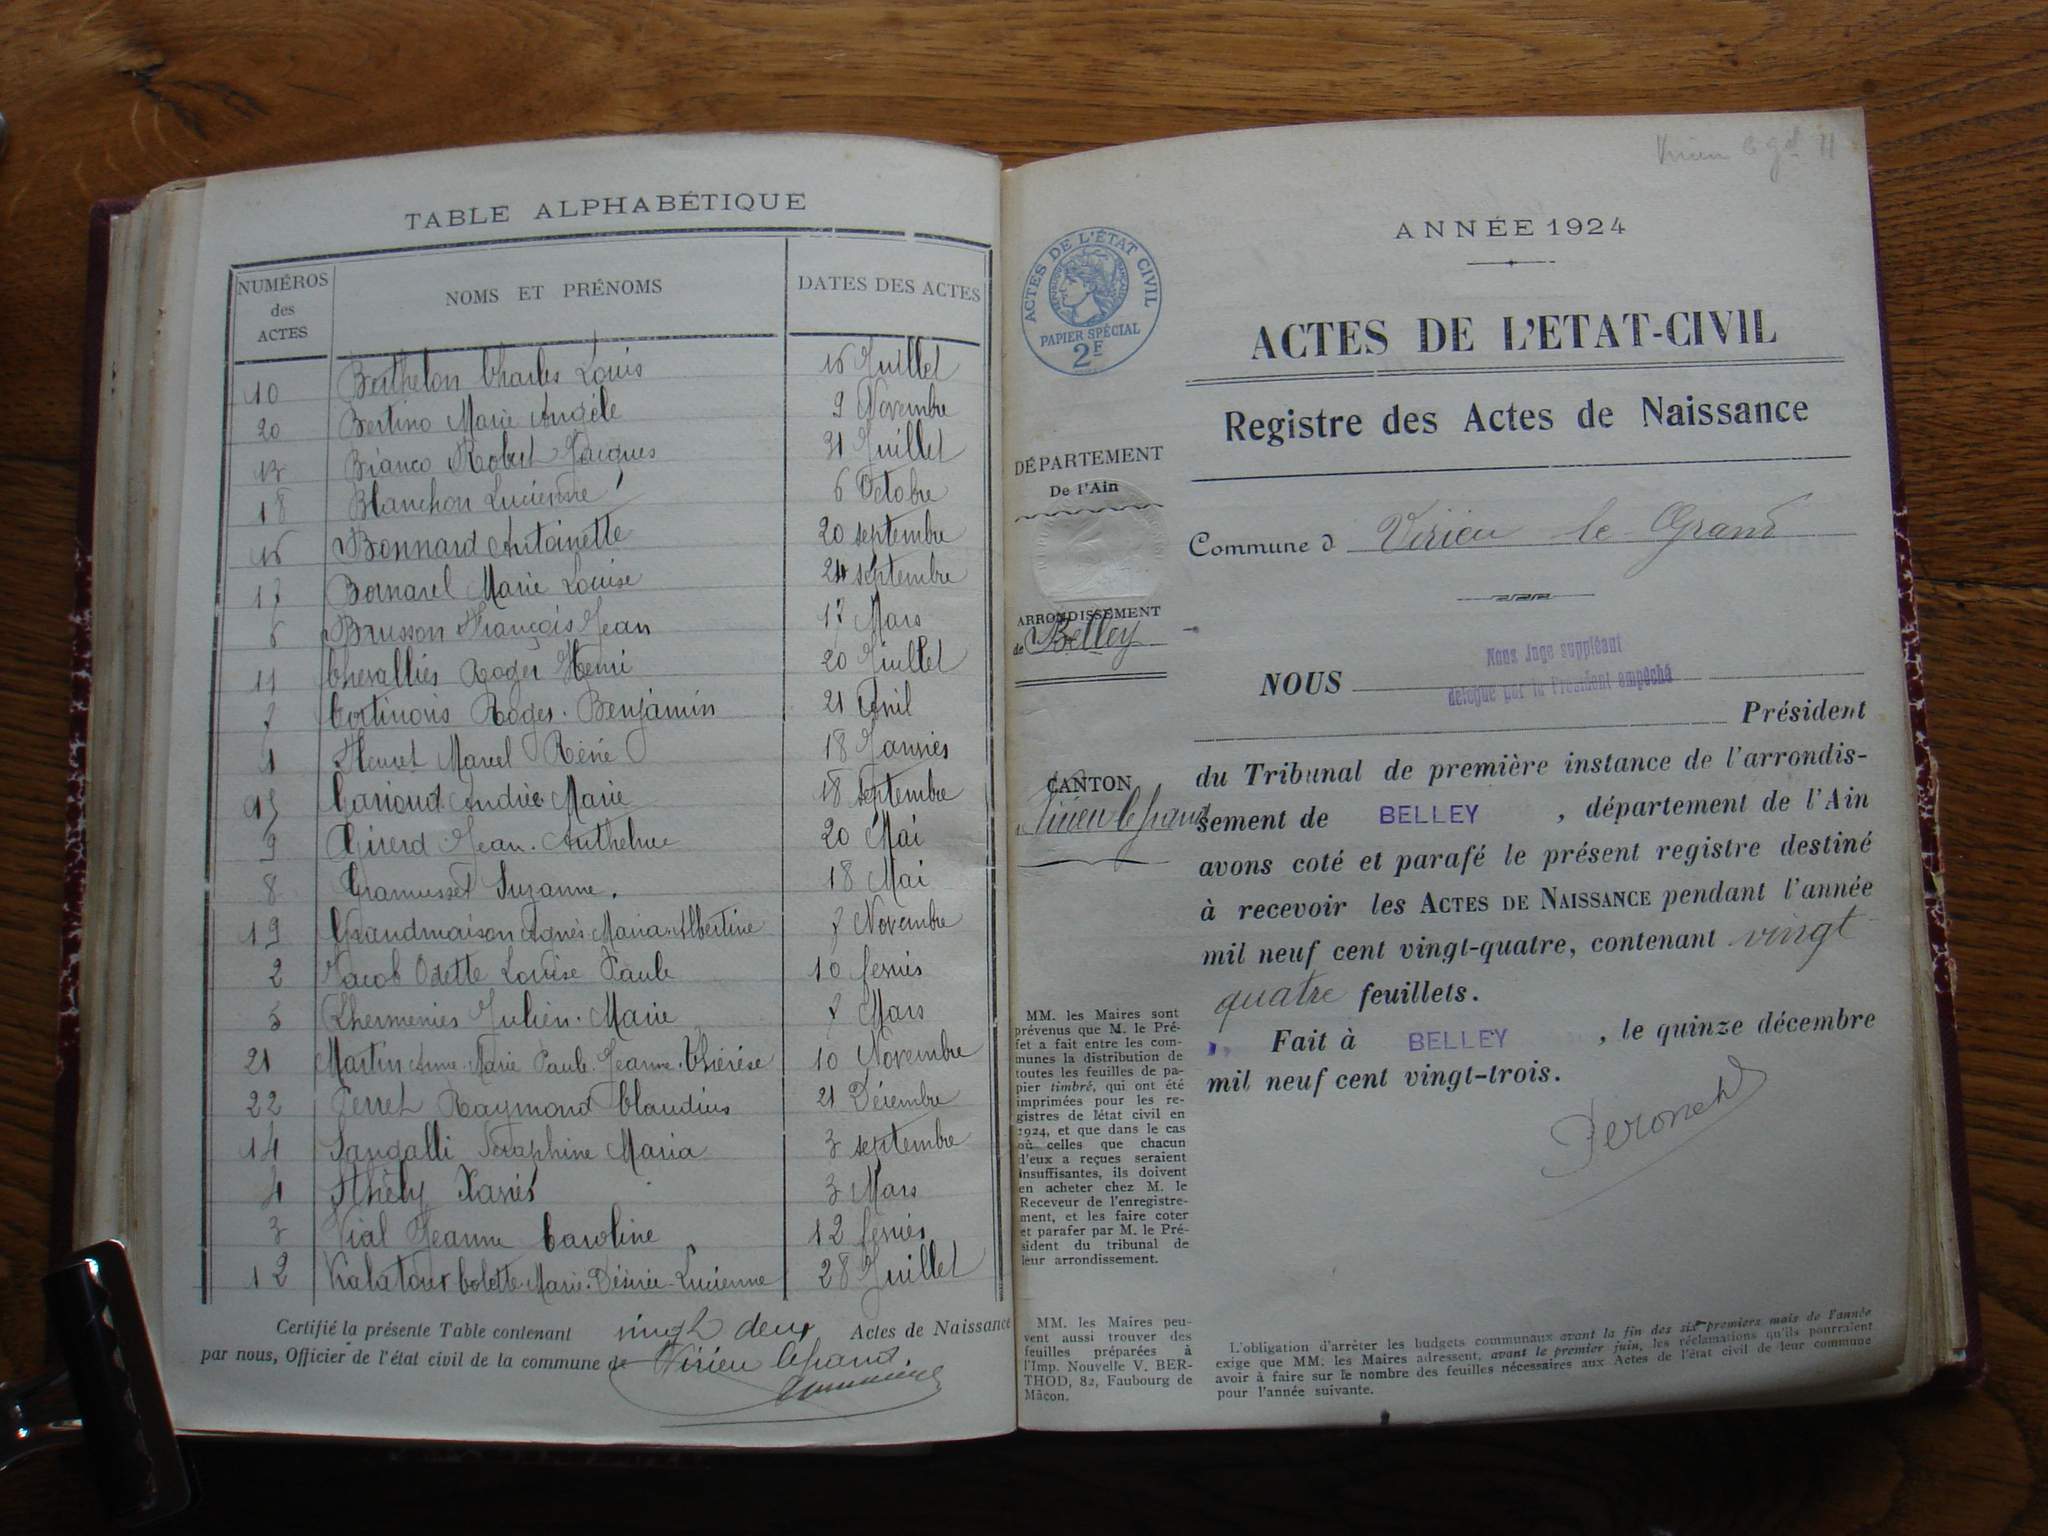 TABLE ALPHABÉTIQUE
NUMÉROS des ACTES NOMS ET PRÉNOMS DATES DES ACTES
10 Berthelon Charles Louis 16 Juillet
20 Bertino Marie Angèle 9 Novembre
13 Bianco Robert Jacques 31 Juillet
18 Blanchon Lucienne 6 Octobre
16 Bonnard Antoinette 20 septembre
17 Bornarel Marie Louise 24 septembre
6 Brusson François Jean 17 Mars
11 Chevallier Roger Henri 20 Juillet
7 Cortinovis Roger Benjamin 21 Avril
1 Fleuret Marcel Réné 18 Janvier
15 Andrée Marie 18 septembre
9 Girerd Jean Anthelme 20 Mai
8 Gramusset Suzanne. 18 Mai
19 Grandmaison Agnès Maria Albertine 7 Novembre
2 Jacob Odette Louise Paule 10 fevrier
5 Julien Marie 7 Mars
21 Martin Anne Marie Paule Jeanne Thérèse 10 Novembre
22 Perret Raymond Claudius 21 Décembre
14 Sangalli Séraphine Maria 3 septembre
4 Xavier 3 Mars
3 Vial Jeanne Caroline 12 fevrier
12 Vialatour Colette Marie Désirée Lucienne 28 Juillet
Certifié la présente Table contenant vingt deux Actes de Naissance
par nous, Officier de l'état civil de la commune de Virieu le grand
Virieu le gd 11
ANNÉE 1924
ACTES DE L'ÉTAT CIVIL
RÉPUBLIQUE FRANÇAISE
PAPIER SPÉCIAL
2F
ACTES DE L'ETAT-CIVIL
Registre des Actes de Naissance
DÉPARTEMENT
De l'Ain
Commune d Virieu le Grand
ARRONDISSEMENT
de Belley
CANTON
Virieu le grand
Nous Juge suppléant
délégué par le Président empêché
NOUS
Président
du Tribunal de première instance de l'arrondis-
sement de BELLEY , département de l'Ain
avons coté et parafé le présent registre destiné
à recevoir les ACTES DE NAISSANCE pendant l'année
mil neuf cent vingt-quatre, contenant vingt
quatre feuillets.
Fait à BELLEY , le quinze décembre
mil neuf cent vingt-trois.
MM. les Maires sont
prévenus que M. le Pré-
fet a fait entre les com-
munes la distribution de
toutes les feuilles de pa-
pier timbré, qui ont été
imprimées pour les re-
gistres de l'état civil en
1924, et que dans le cas
où celles que chacun
d'eux a reçues seraient
insuffisantes, ils doivent
en acheter chez M. le
Receveur de l'enregistre-
ment, et les faire coter
et parafer par M. le Pré-
sident du tribunal de
leur arrondissement.
MM. les Maires peu-
vent aussi trouver des
feuilles préparées à
l'Imp. Nouvelle V. BER-
THOD, 82, Faubourg de
Mâcon.
L'obligation d'arrêter les budgets communaux avant la fin des six premiers mois de l'année
exige que MM. les Maires adressent, avant le premier juin, les réclamations qu'ils pourraient
avoir à faire sur le nombre des feuilles nécessaires aux Actes de l'état civil de leur commune
pour l'année suivante.